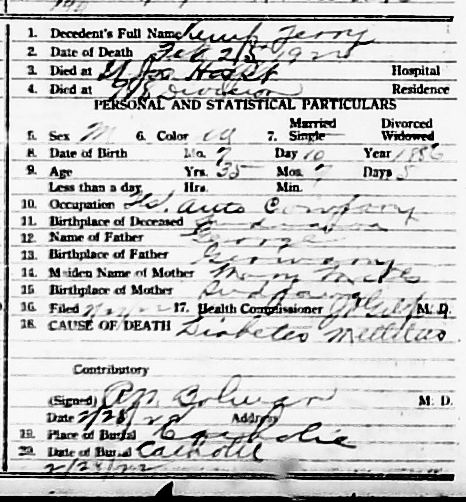 1. Decedent's Full Name Kemp Jerry
2. Date of Death Feb 25 1922
3. Died at St Jos Hospt Hospital
4. Died at Division Residence
PERSONAL AND STATISTICAL PARTICULARS
5. Sex M 6. Color W 7. Married Single Divorced Widowed
8. Date of Birth Mo. 7 Day 10 Year 1886
9. Age Yrs. 35 Mos. 7 Days 5
Less than a day Hrs. Min.
10. Occupation Auto Company
11. Birthplace of Deceased Indiana
12. Name of Father George
13. Birthplace of Father Germany
14. Maiden Name of Mother Mary
15. Birthplace of Mother
16. Filed 17. Health Commissioner M. D.
18. CAUSE OF DEATH Diabetes Mellitus
Contributory
(Signed) M. D.
Date 2/28/22 Address
19. Place of Burial Catholic
20. Date of Burial Catholic